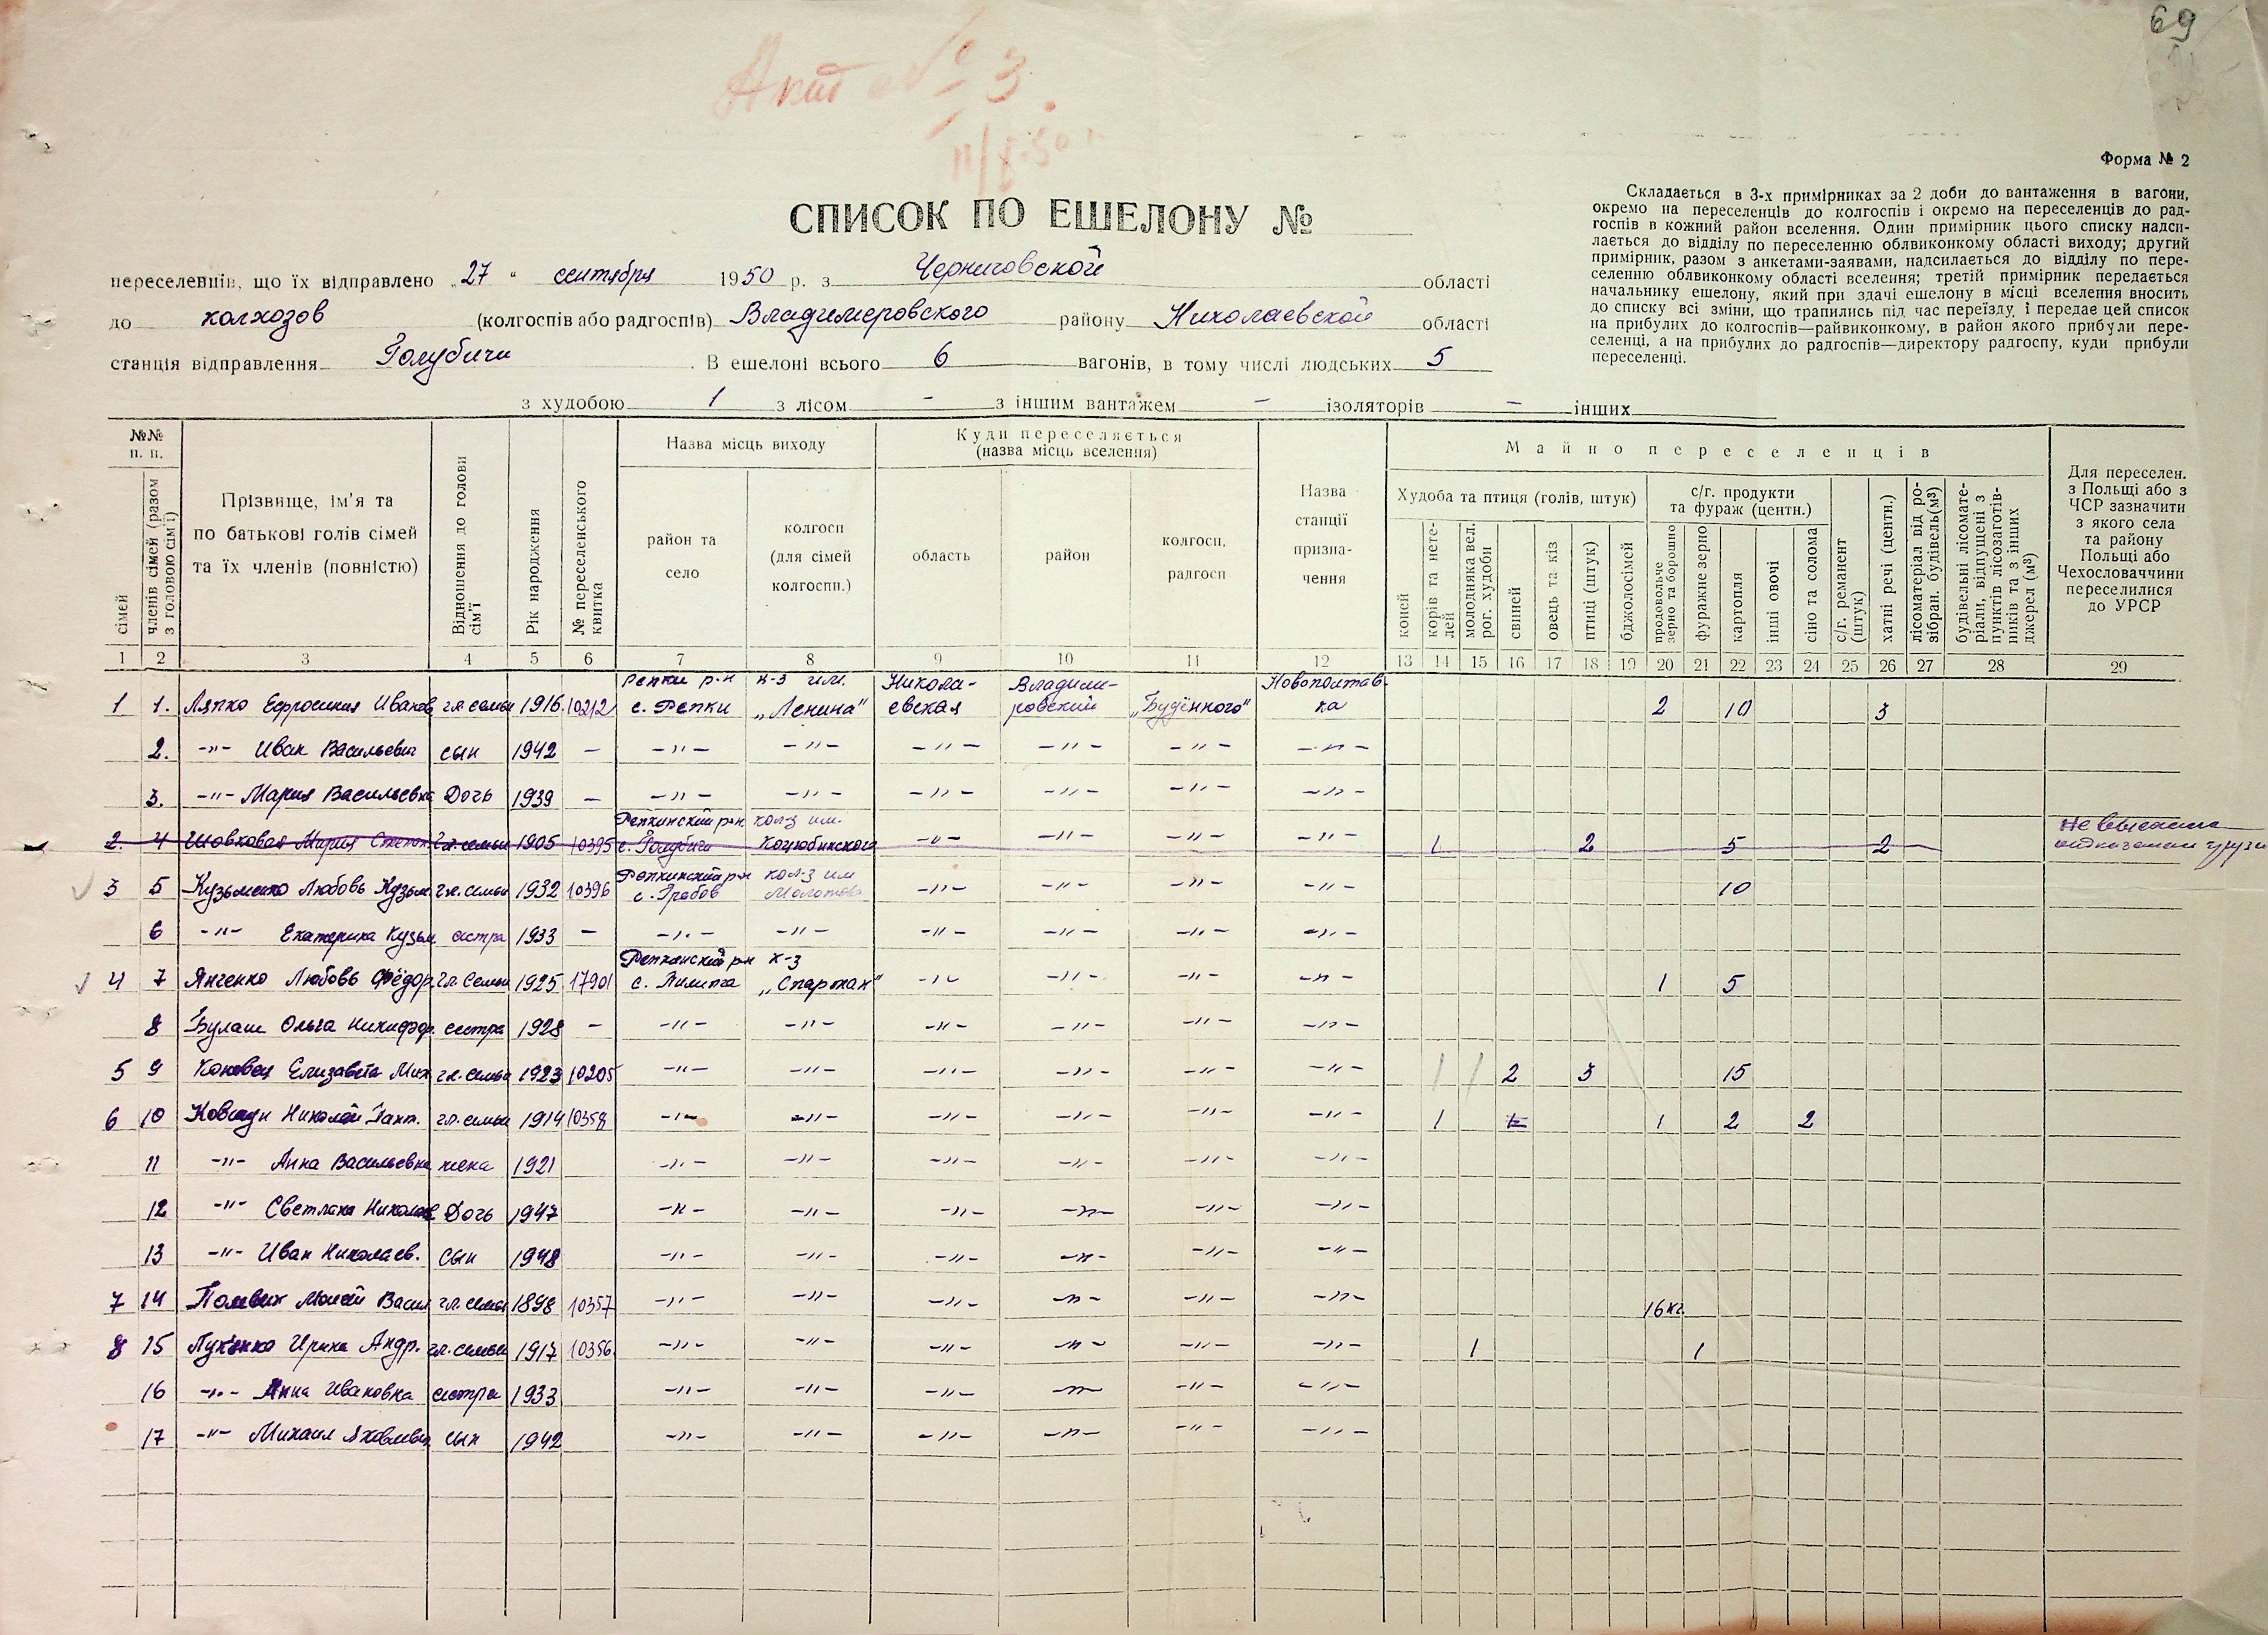 69
Акт № 3.
Форма № 2
СПИСОК ПО ЕШЕЛОНУ №
Складається в 3-х примірниках за 2 доби до вантаження в вагони,
окремо на переселенців до колгоспів і окремо на переселенців до рад-
госпів в кожний район вселення. Один примірник цього списку надси-
лається до відділу по переселенню облвиконкому області виходу; другий
примірник, разом з анкетами-заявами, надсилається до відділу по пере-
селенню облвиконкому області вселення; третій примірник передається
начальнику ешелону, який при здачі ешелону в місці вселення вносить
до списку всі зміни, що трапились під час переїзду, і передає цей список
на прибулих до колгоспів—райвиконкому, в район якого прибули пере-
селенці, а на прибулих до радгоспів—директору радгоспу, куди прибули
переселенці.
переселенців, що їх відправлено „27" сентября 1950 р. з Черниговской області
до колхозов (колгоспів або радгоспів) Владимеровского району Николаевской області
станція відправлення Голубичи. В ешелоні всього 6 вагонів, в тому числі людських 5
з худобою 1 з лісом - з іншим вантажем - ізоляторів - інших
№№ п. п.
сімей
членів сімей (разом з головою сім'ї)
Прізвище, ім'я та по батькові голів сімей та їх членів (повністю)
Відношення до голови сім'ї
Рік народження
№ переселенського квитка
Назва місць виходу
район та село
колгосп (для сімей колгоспн.)
Куди переселяється (назва місць вселення)
область
район
колгосп, радгосп
Назва станції призна-чення
Майно переселенців
Худоба та птиця (голів, штук)
коней
корів та нете-лей
молодняка вел. рог. худоби
свиней
овець та кіз
птиці (штук)
бджолосімей
с/г. продукти та фураж (центн.)
продовольче зерно та борошно
фуражне зерно
картопля
інші овочі
сіно та солома
с/г. реманент (штук)
хатні речі (центн.)
лісоматеріал від ро-зібран. будівель(м³)
будівельні лісомате-ріали, відпущені з пунктів лісозаготів-ників та з інших джерел (м³)
Для переселен. з Польщі або з ЧСР зазначити з якого села та району Польщі або Чехословаччини переселилися до УРСР
1 2 3 4 5 6 7 8 9 10 11 12 13 14 15 16 17 18 19 20 21 22 23 24 25 26 27 28 29
Репки р-н к-з им. Никола- Владими- Новополтав-
1 1. Ляпко Ефросиния Иванов гл семьи 1916 10212 с. Репки „Ленина" евская ровский „Будённого" ка 2 10 3
2. -"- Иван Васильевич сын 1942 - -"- -"- -"- -"- -"- -"-
3. -"- Мария Васильевна Дочь 1939 - -"- -"- -"- -"- -"- -"-
Репкинский р-н кол-з им.
2. 4 Шовковая Мария Степан гл. семьи 1905 10395 с. Голубичи Коцюбинского -"- -"- -"- -"- 1 2 5 2
Репкинский р-н кол-з им
3 5 Кузьменко Любовь Кузьм гл. семьи 1932 10396 с. Грабов Молотова -"- -"- -"- -"- 10
6 -"- Екатерина Кузьм сестра 1933 - -"- -"- -"- -"- -"- -"-
Репкинский р-н к-з
4 7 Янченко Любовь Фёдор. гл. Семьи 1925 17901 с. Пилипча „Спартак" -"- -"- -"- -"- 1 5
8 Булаш Ольга Никифор. сестра 1928 - -"- -"- -"- -"- -"- -"-
5 9 Коновец Елизавета Мих гл. семьи 1923 10205 -"- -"- -"- -"- -"- -"- 1 1 2 3 15
6 10 Николай гл. семьи 1914 10358 -"- -"- -"- -"- -"- -"- 1 1 2 2
11 -"- Анна Васильевна жена 1921 -"- -"- -"- -"- -"- -"-
12 -"- Светлана Николаев Дочь 1947 -"- -"- -"- -"- -"- -"-
13 -"- Иван Николаев. Сын 1948 -"- -"- -"- -"- -"- -"-
7 14 Васил гл. семьи 1898 10357 -"- -"- -"- -"- -"- -"- 16 кг.
8 15 Ирина Андр. гл. семьи 1917 10356 -"- -"- -"- -"- -"- -"- 1 1
16 -"- Анна Ивановна сестра 1933 -"- -"- -"- -"- -"- -"-
17 -"- Михаил Яковлевич сын 1942 -"- -"- -"- -"- -"- -"-